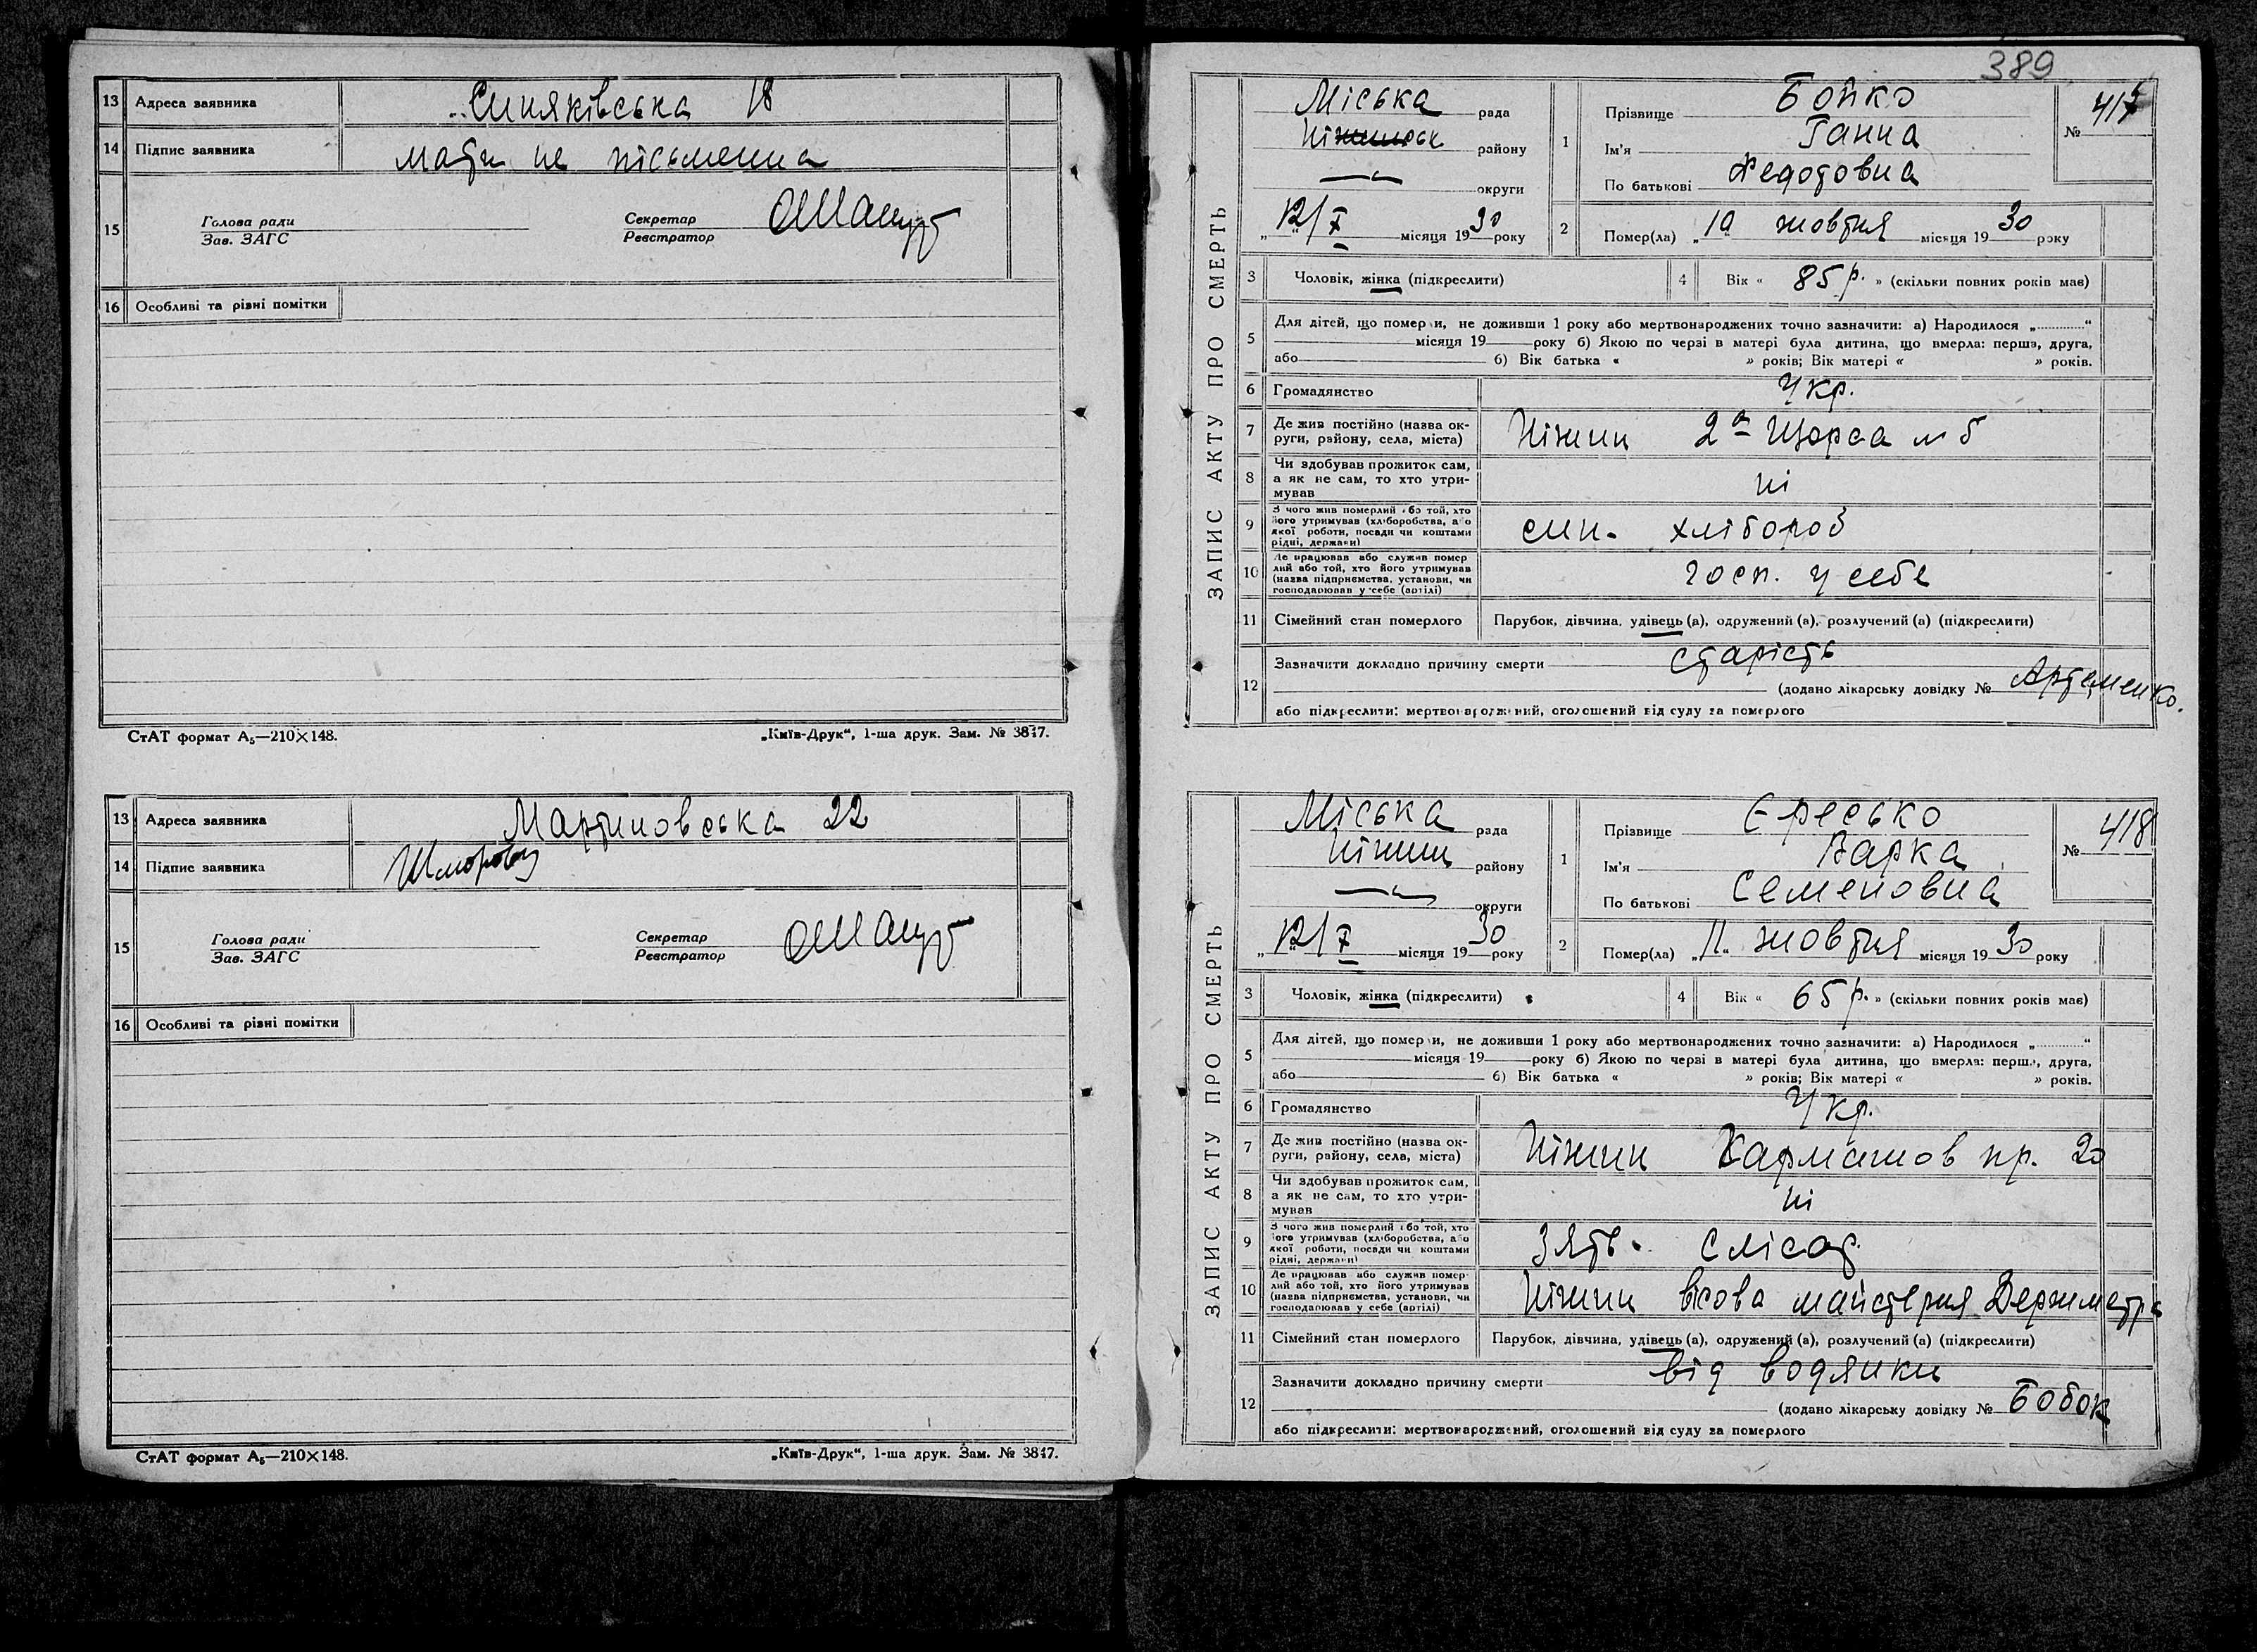 13 Адреса заявника Синяківська 18
14 Підпис заявника мати не пісьменна
15 Голова ради Зав. ЗАГС Секретар Реєстратор
16 Особливі та різні помітки
СтАТ формат А₅—210×148. „Київ-Друк“, 1-ша друк. Зам. № 3847.
13 Адреса заявника Мартиновська 22
14 Підпис заявника
15 Голова ради Зав. ЗАГС Секретар Реєстратор
16 Особливі та різні помітки
СтАТ формат А₅—210×148. „Київ-Друк“, 1-ша друк. Зам. № 3847.
389
ЗАПИС АКТУ ПРО СМЕРТЬ
Міська рада
району
округи
12/X місяця 1930 року
1 Прізвище Бойко
Ім'я Ганна
По батькові Федотовна
№ 417
2 Помер(ла) „10 жовтня місяця 1930 року
3 Чоловік, жінка (підкреслити)
4 Вік « 85 р. » (скільки повних років має)
5 Для дітей, що померли, не доживши 1 року або мертвонароджених точно зазначити: а) Народилося „............“
місяця 19 року б) Якою по черзі в матері була дитина, що вмерла: перша, друга,
або б) Вік батька « » років; Вік матері « » років.
6 Громадянство Укр.
7 Де жив постійно (назва округи, району, села, міста) Ніжин 2а Щорса № 5
8 Чи здобував прожиток сам, а як не сам, то хто утримував ні
9 З чого жив померлий або той, хто його утримував (хліборобства, або якої роботи, посади чи коштами рідні, держави) син. хлібороб
10 Де працював або служив померлий або той, хто його утримував (назва підприємства, установи, чи господарював у себе (артілі) госп. у себе
11 Сімейний стан померлого Парубок, дівчина, удівець (а), одружений (а), розлучений (а) (підкреслити)
12 Зазначити докладно причину смерти старість
(додано лікарську довідку № Артеменко.
або підкреслити: мертвонароджений, оголошений від суду за померлого
ЗАПИС АКТУ ПРО СМЕРТЬ
Міська рада
Ніжин району
округи
„12/X місяця 1930 року
1 Прізвище Єресько
Ім'я Варка
По батькові Семеновна
№ 418
2 Помер(ла) „11“ жовтня місяця 1930 року
3 Чоловік, жінка (підкреслити)
4 Вік « 65 р. » (скільки повних років має)
5 Для дітей, що померли, не доживши 1 року або мертвонароджених точно зазначити: а) Народилося „............“
місяця 19 року б) Якою по черзі в матері була дитина, що вмерла: перша, друга,
або б) Вік батька « » років; Вік матері « » років.
6 Громадянство Укр.
7 Де жив постійно (назва округи, району, села, міста) Ніжин пр. 20
8 Чи здобував прожиток сам, а як не сам, то хто утримував ні
9 З чого жив померлий або той, хто його утримував (хліборобства, або якої роботи, посади чи коштами рідні, держави) зять. слісар.
10 Де працював або служив померлий або той, хто його утримував (назва підприємства, установи, чи господарював у себе (артілі) Ніжин вісова майстерня Держметра
11 Сімейний стан померлого Парубок, дівчина, удівець (а), одружений (а), розлучений (а) (підкреслити)
12 Зазначити докладно причину смерти від водянки
(додано лікарську довідку № Бобок
або підкреслити: мертвонароджений, оголошений від суду за померлого